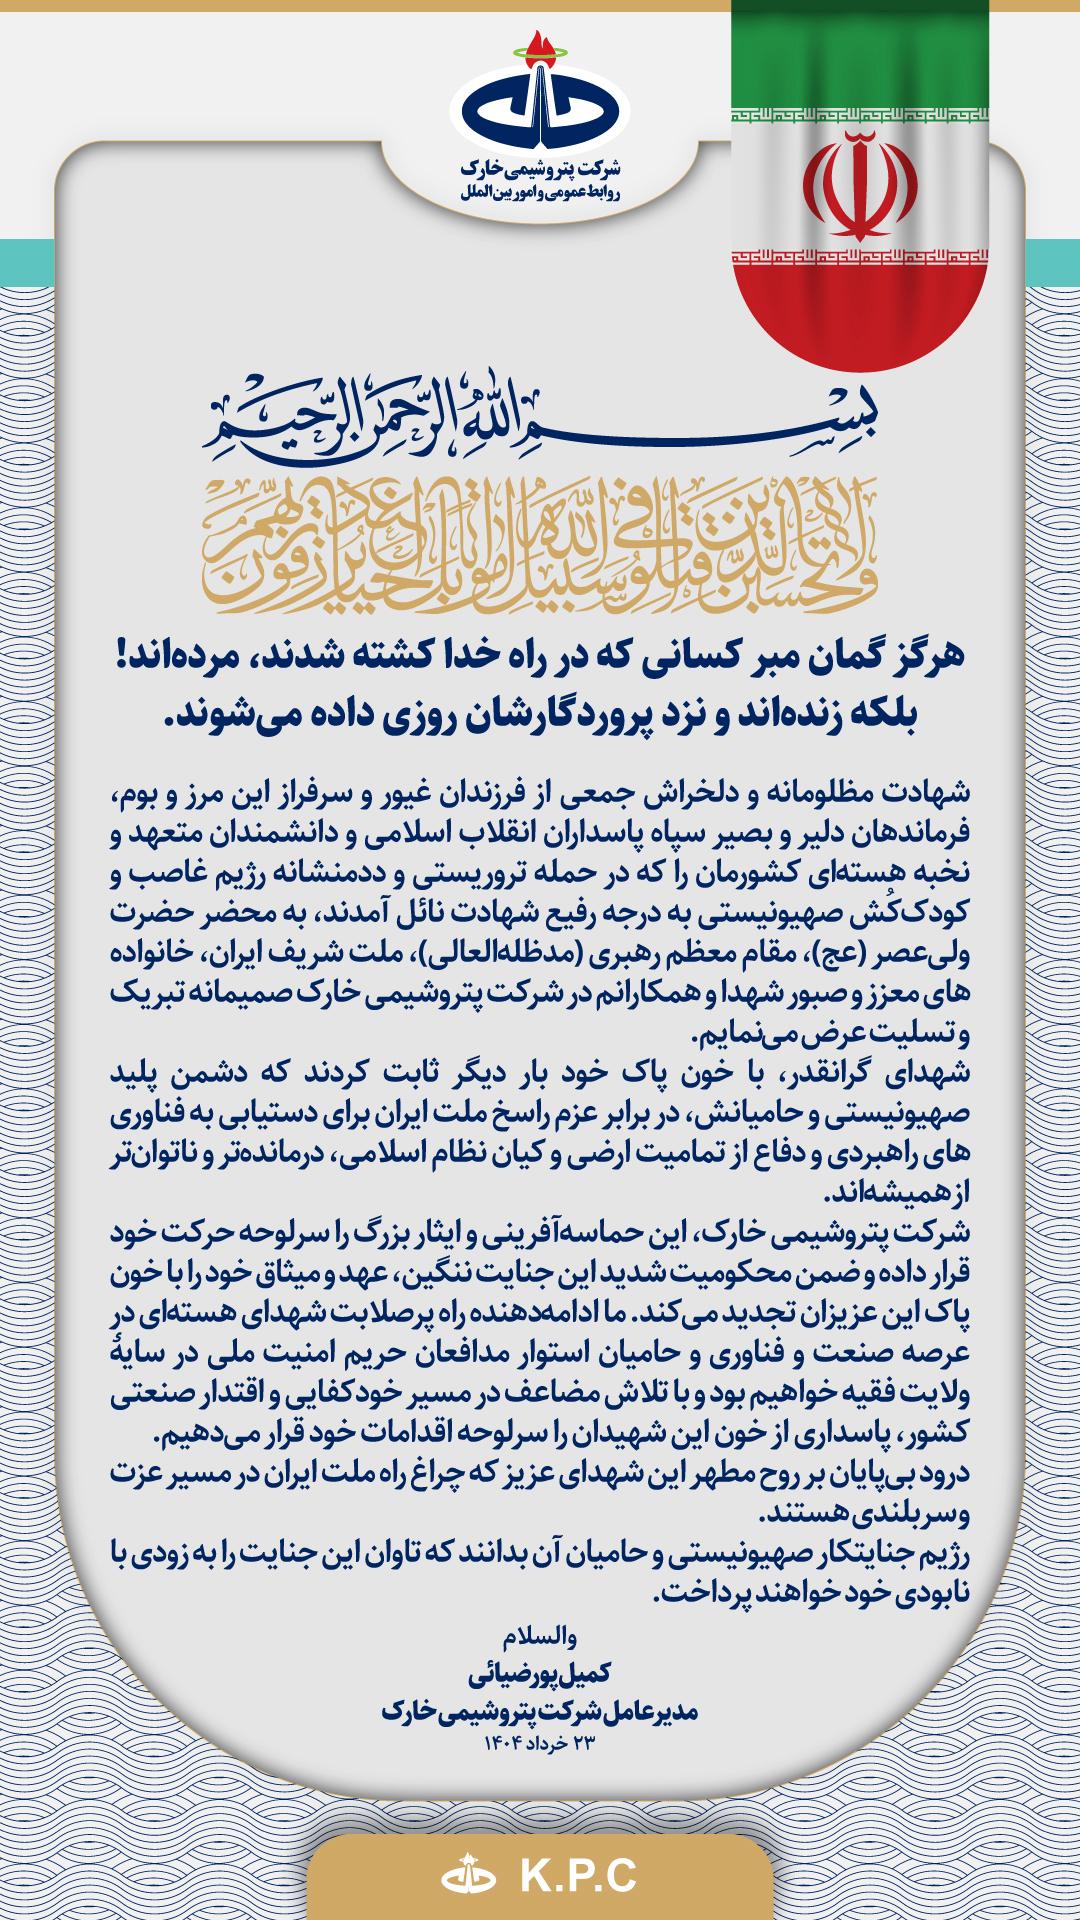 شرکت پتروشیمی خارک
روابط عمومی و امور بین الملل
بسم الله الرحمن الرحیم
ولا تحسبن الذین قتلوا فی سبیل الله امواتا بل احیاء عند ربهم یرزقون
هرگز گمان مبر کسانی که در راه خدا کشته شدند، مرده‌اند!
بلکه زنده‌اند و نزد پروردگارشان روزی داده می‌شوند.
شهادت مظلومانه و دلخراش جمعی از فرزندان غیور و سرفراز این مرز و بوم،
فرماندهان دلیر و بصیر سپاه پاسداران انقلاب اسلامی و دانشمندان متعهد و
نخبه هسته‌ای کشورمان را که در حمله تروریستی و ددمنشانه رژیم غاصب و
کودک‌کُش صهیونیستی به درجه رفیع شهادت نائل آمدند، به محضر حضرت
ولی‌عصر (عج)، مقام معظم رهبری (مدظله‌العالی)، ملت شریف ایران، خانواده
های معزز و صبور شهدا و همکارانم در شرکت پتروشیمی خارک صمیمانه تبریک
و تسلیت عرض می‌نمایم.
شهدای گرانقدر، با خون پاک خود بار دیگر ثابت کردند که دشمن پلید
صهیونیستی و حامیانش، در برابر عزم راسخ ملت ایران برای دستیابی به فناوری
های راهبردی و دفاع از تمامیت ارضی و کیان نظام اسلامی، درمانده‌تر و ناتوان‌تر
از همیشه‌اند.
شرکت پتروشیمی خارک، این حماسه‌آفرینی و ایثار بزرگ را سرلوحه حرکت خود
قرار داده و ضمن محکومیت شدید این جنایت ننگین، عهد و میثاق خود را با خون
پاک این عزیزان تجدید می‌کند. ما ادامه‌دهنده راه پرصلابت شهدای هسته‌ای در
عرصه صنعت و فناوری و حامیان استوار مدافعان حریم امنیت ملی در سایهٔ
ولایت فقیه خواهیم بود و با تلاش مضاعف در مسیر خودکفایی و اقتدار صنعتی
کشور، پاسداری از خون این شهیدان را سرلوحه اقدامات خود قرار می‌دهیم.
درود بی‌پایان بر روح مطهر این شهدای عزیز که چراغ راه ملت ایران در مسیر عزت
و سربلندی هستند.
رژیم جنایتکار صهیونیستی و حامیان آن بدانند که تاوان این جنایت را به زودی با
نابودی خود خواهند پرداخت.
والسلام
کمیل پورضیائی
مدیرعامل شرکت پتروشیمی خارک
۲۳ خرداد ۱۴۰۴
K.P.C